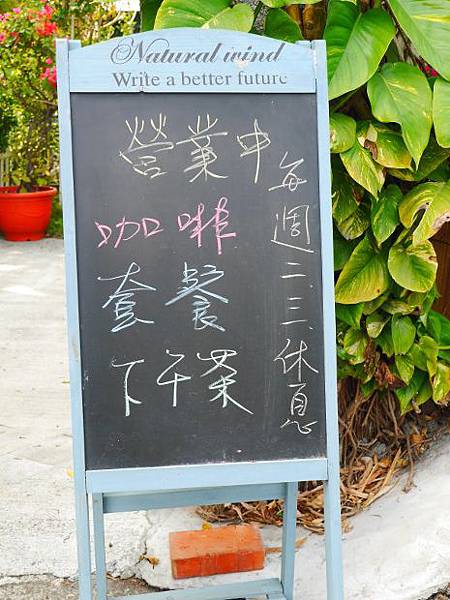 Natural wind
Write a better future
營業中
咖啡
套餐
下午茶
每週二、三、休息